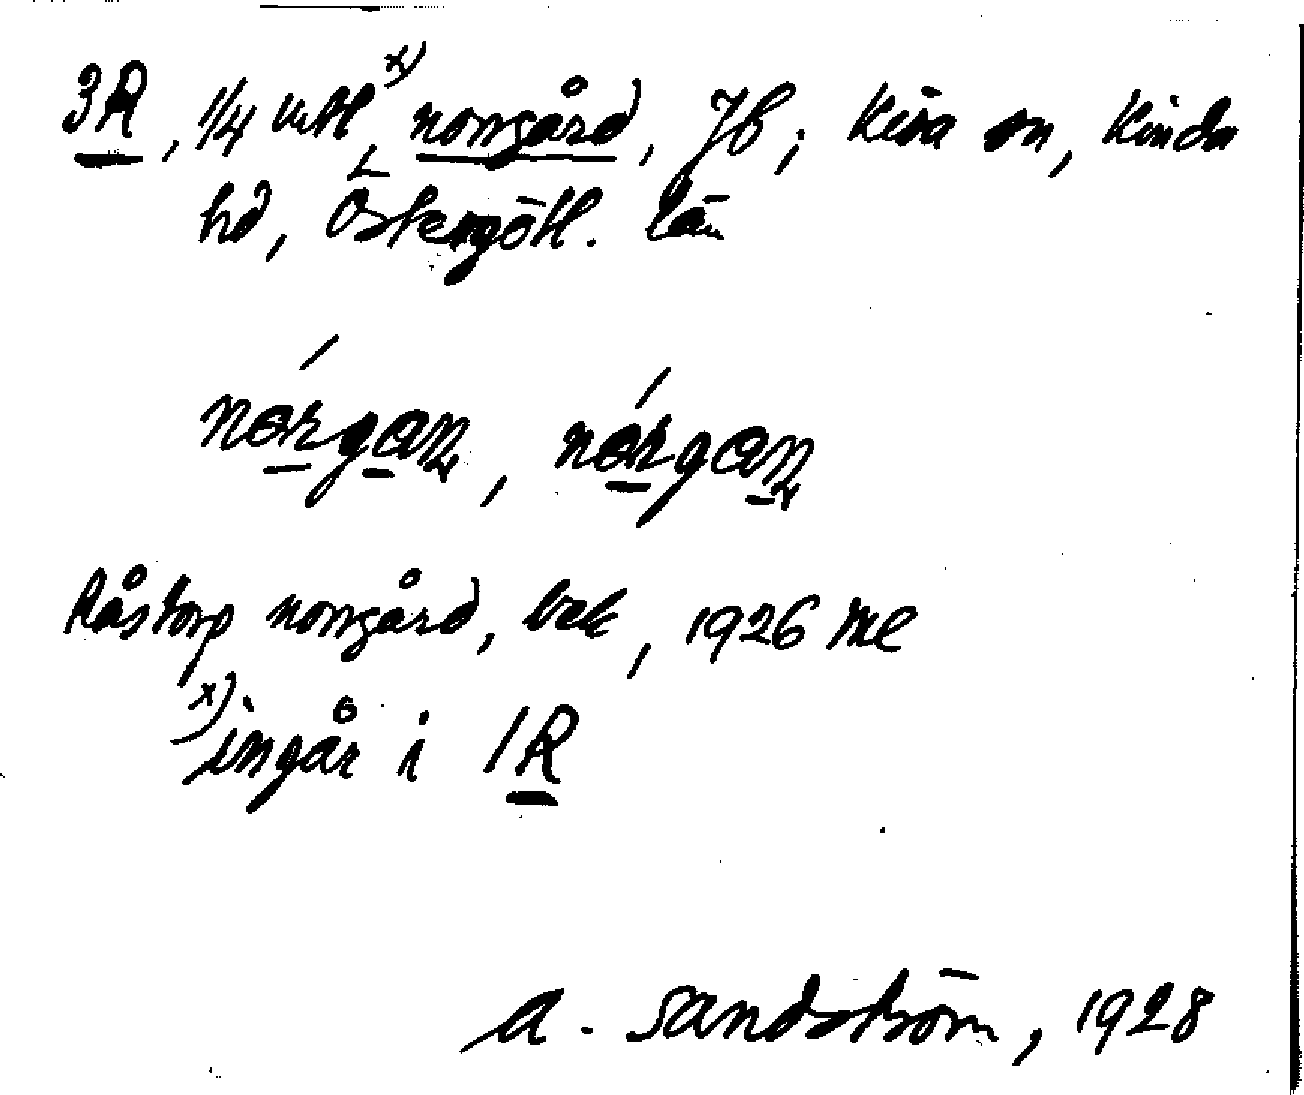 3R, 1/4 mtl x), norrgård, Jb; Kisa sn, Kinda
hd, Östergötl. län
nórgan, nórgan
Råstorp norrgård, bek, 1926 ML
x) ingår i 1R
A. Sandström, 1928